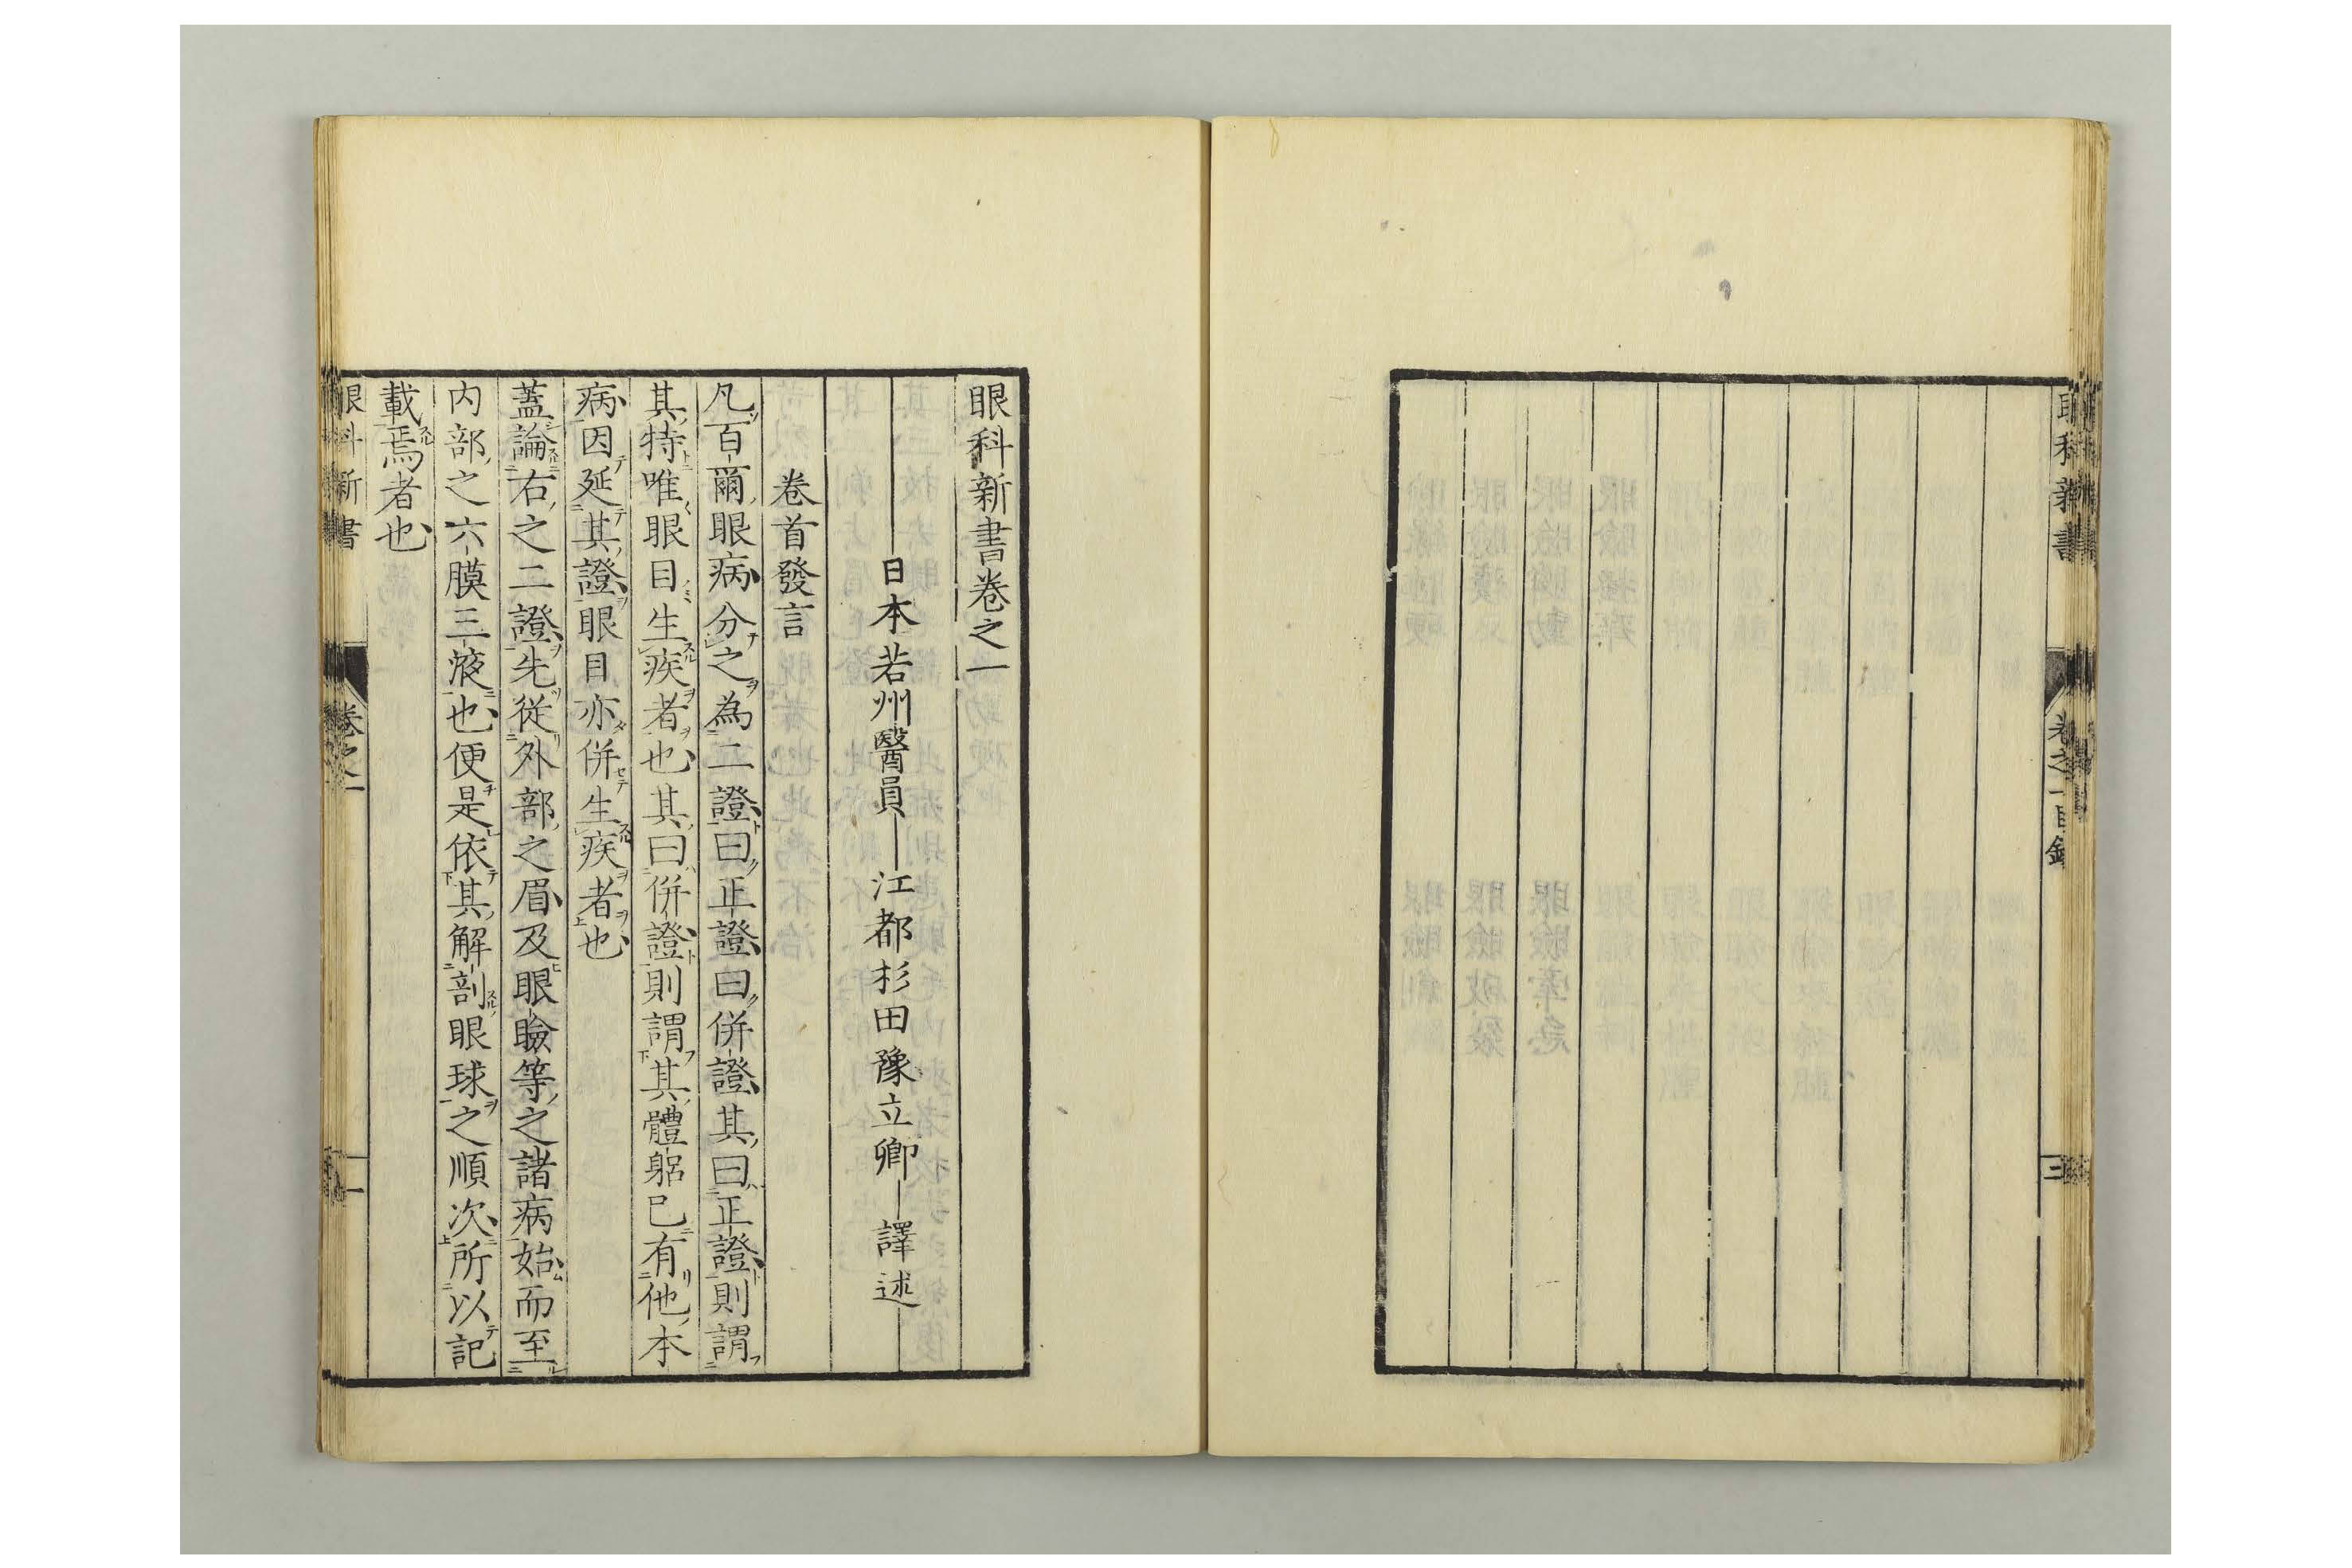 眼科新書
卷之一目錄
三
眼科新書卷之一
日本若州醫員 江都杉田豫立卿 譯述
卷首發言
凡百爾眼病分之為二證曰正證曰併證其曰正證則謂
其特唯眼目生疾者也其曰併證則謂其體躬已有他本
病因延其證眼目亦併生疾者也
蓋論右之二證先從外部之眉及眼瞼等之諸病始而至
内部之六膜三液也便是依其解剖眼球之順次所以記
載焉者也
眼科新書
卷之一
一